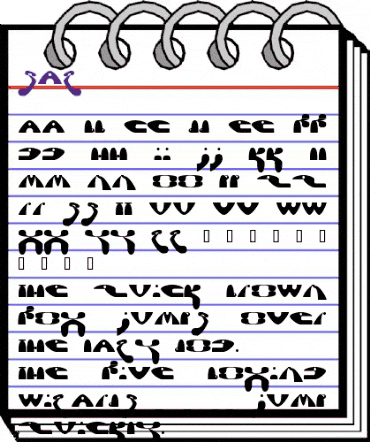 AA BB CC DD EE FF
GG HH II JJ KK LL
MM NN OO PP QQ
RR SS TT UU VV WW
XX YY ZZ
THE QUICK BROWN
FOX JUMPS OVER
THE LAZY DOG.
THE FIVE BOXING
WIZARDS JUMP
QUICKLY.